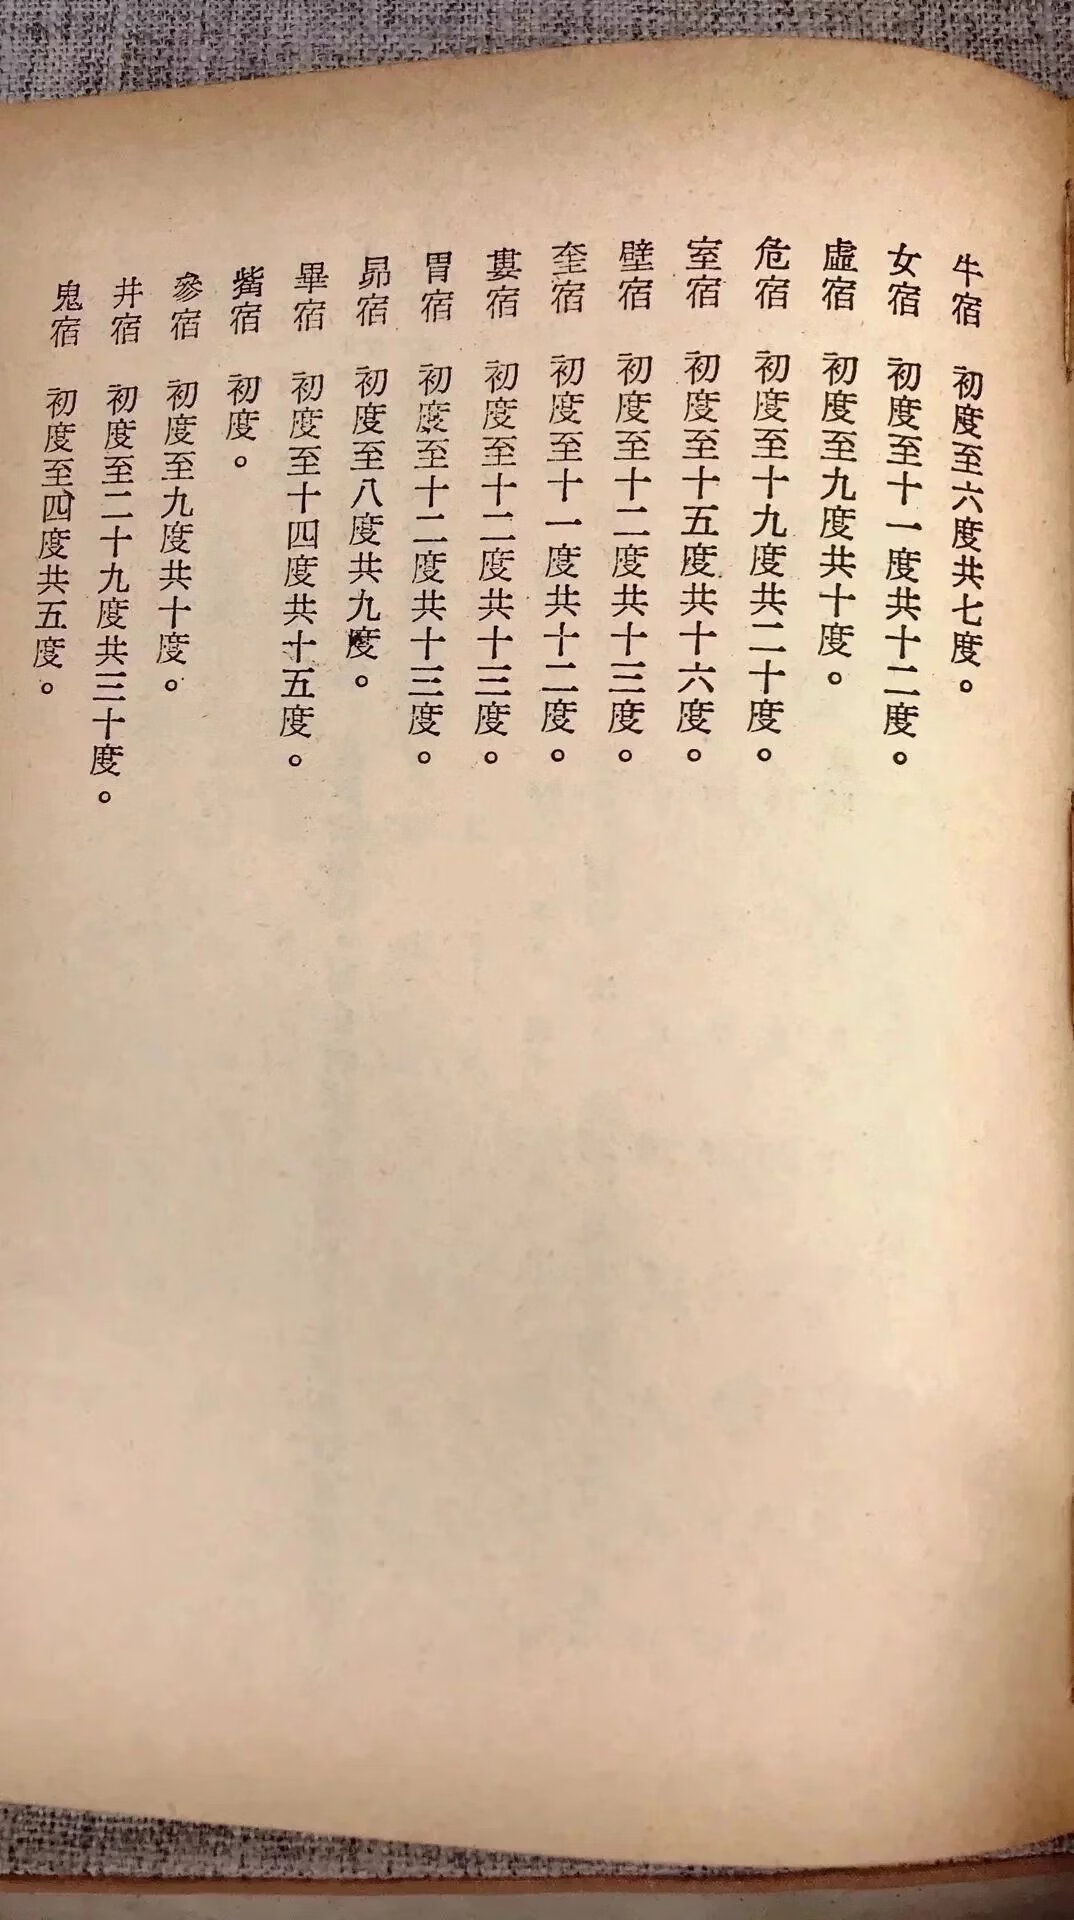 牛宿　初度至六度共七度。
女宿　初度至十一度共十二度。
虛宿　初度至九度共十度。
危宿　初度至十九度共二十度。
室宿　初度至十五度共十六度。
壁宿　初度至十二度共十三度。
奎宿　初度至十一度共十二度。
婁宿　初度至十二度共十三度。
胃宿　初度至十二度共十三度。
昴宿　初度至八度共九度。
畢宿　初度至十四度共十五度。
觜宿　初度。
參宿　初度至九度共十度。
井宿　初度至二十九度共三十度。
鬼宿　初度至四度共五度。